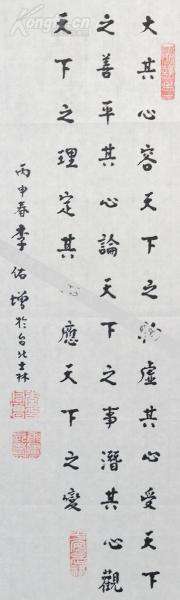 大其心容天下之物虛其心受天下
之善平其心論天下之事潛其心觀
天下之理定其心應天下之變
丙申春李佑增於台北士林